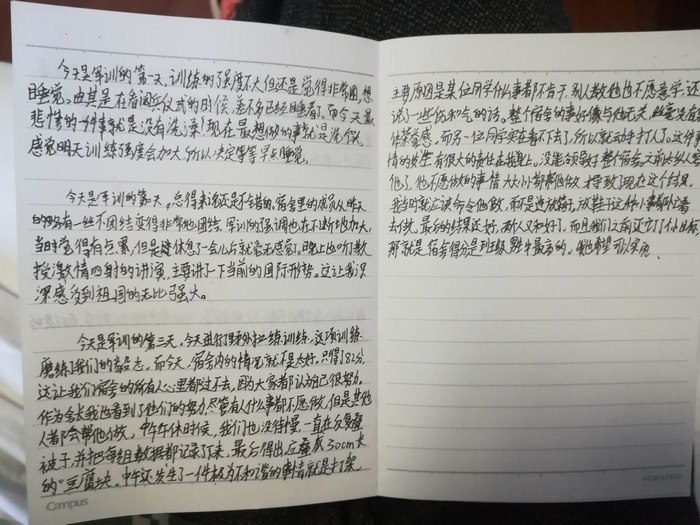 今天是军训的第一天,训练的强度不大但还是觉得非常困,想
睡觉。尤其是在看阅兵仪式的时候,差不多已经睡着了。而今天最
悲惨的一件事就是没有洗澡!现在最想做的事就是洗个澡。
感觉明天训练强度会加大,所以决定等等早点睡觉。
今天是军训的第二天,总得来说还是不错的。宿舍里的成员从昨天
的略有一些不团结变得非常地团结。军训的强调也在不断地加大,
当时觉得有点累,但是进休息了一会儿后就毫无感觉了。晚上也听了教
授激情四射的讲演,主要讲了下当前的国际形势。这让我深
深感受到祖国的无比强大。
今天是军训的第三天,今天进行了野外拉练训练,这项训练
磨练了我们的毅志。而今天,宿舍内的情况就不是太好。只得了82分,
这让我们宿舍的所有人心里都过不去,因为大家都认为自己很努力。
作为舍长我也看到了他们的努力,尽管有人什么事都不愿做,但是其他
人都会帮他做。中午午休时候,我们也没待慢,一直在反复叠
被子,并把每组数据都记录了下来,最后得出应叠成30cm长
的"豆腐块"。中午还发生了一件极为不和谐的事情就是打架,
Campus
主要原因是某位同学什么事都不肯干,别人教他他也不愿意学,还
说了一些伤和气的话。整个宿舍的事好像与他无关,丝毫没有
体荣誉感。而另一位同学实在看不下去了,所以就动手打人了。这件事
情的发生有很大的责任在我身上。没能领导好整个宿舍,之前太纵容
他了,他不愿做的事情大大小小都帮他做,导致了现在这个结果。
我当时就应该命令他做,而是连放鞋子,放鞋子这种小事都忙着
去做。最后的结果还好,两人又和好了。而且我们又前还立了个小目标,
那就是宿舍得分是班级里最高的。我希望可以实现。